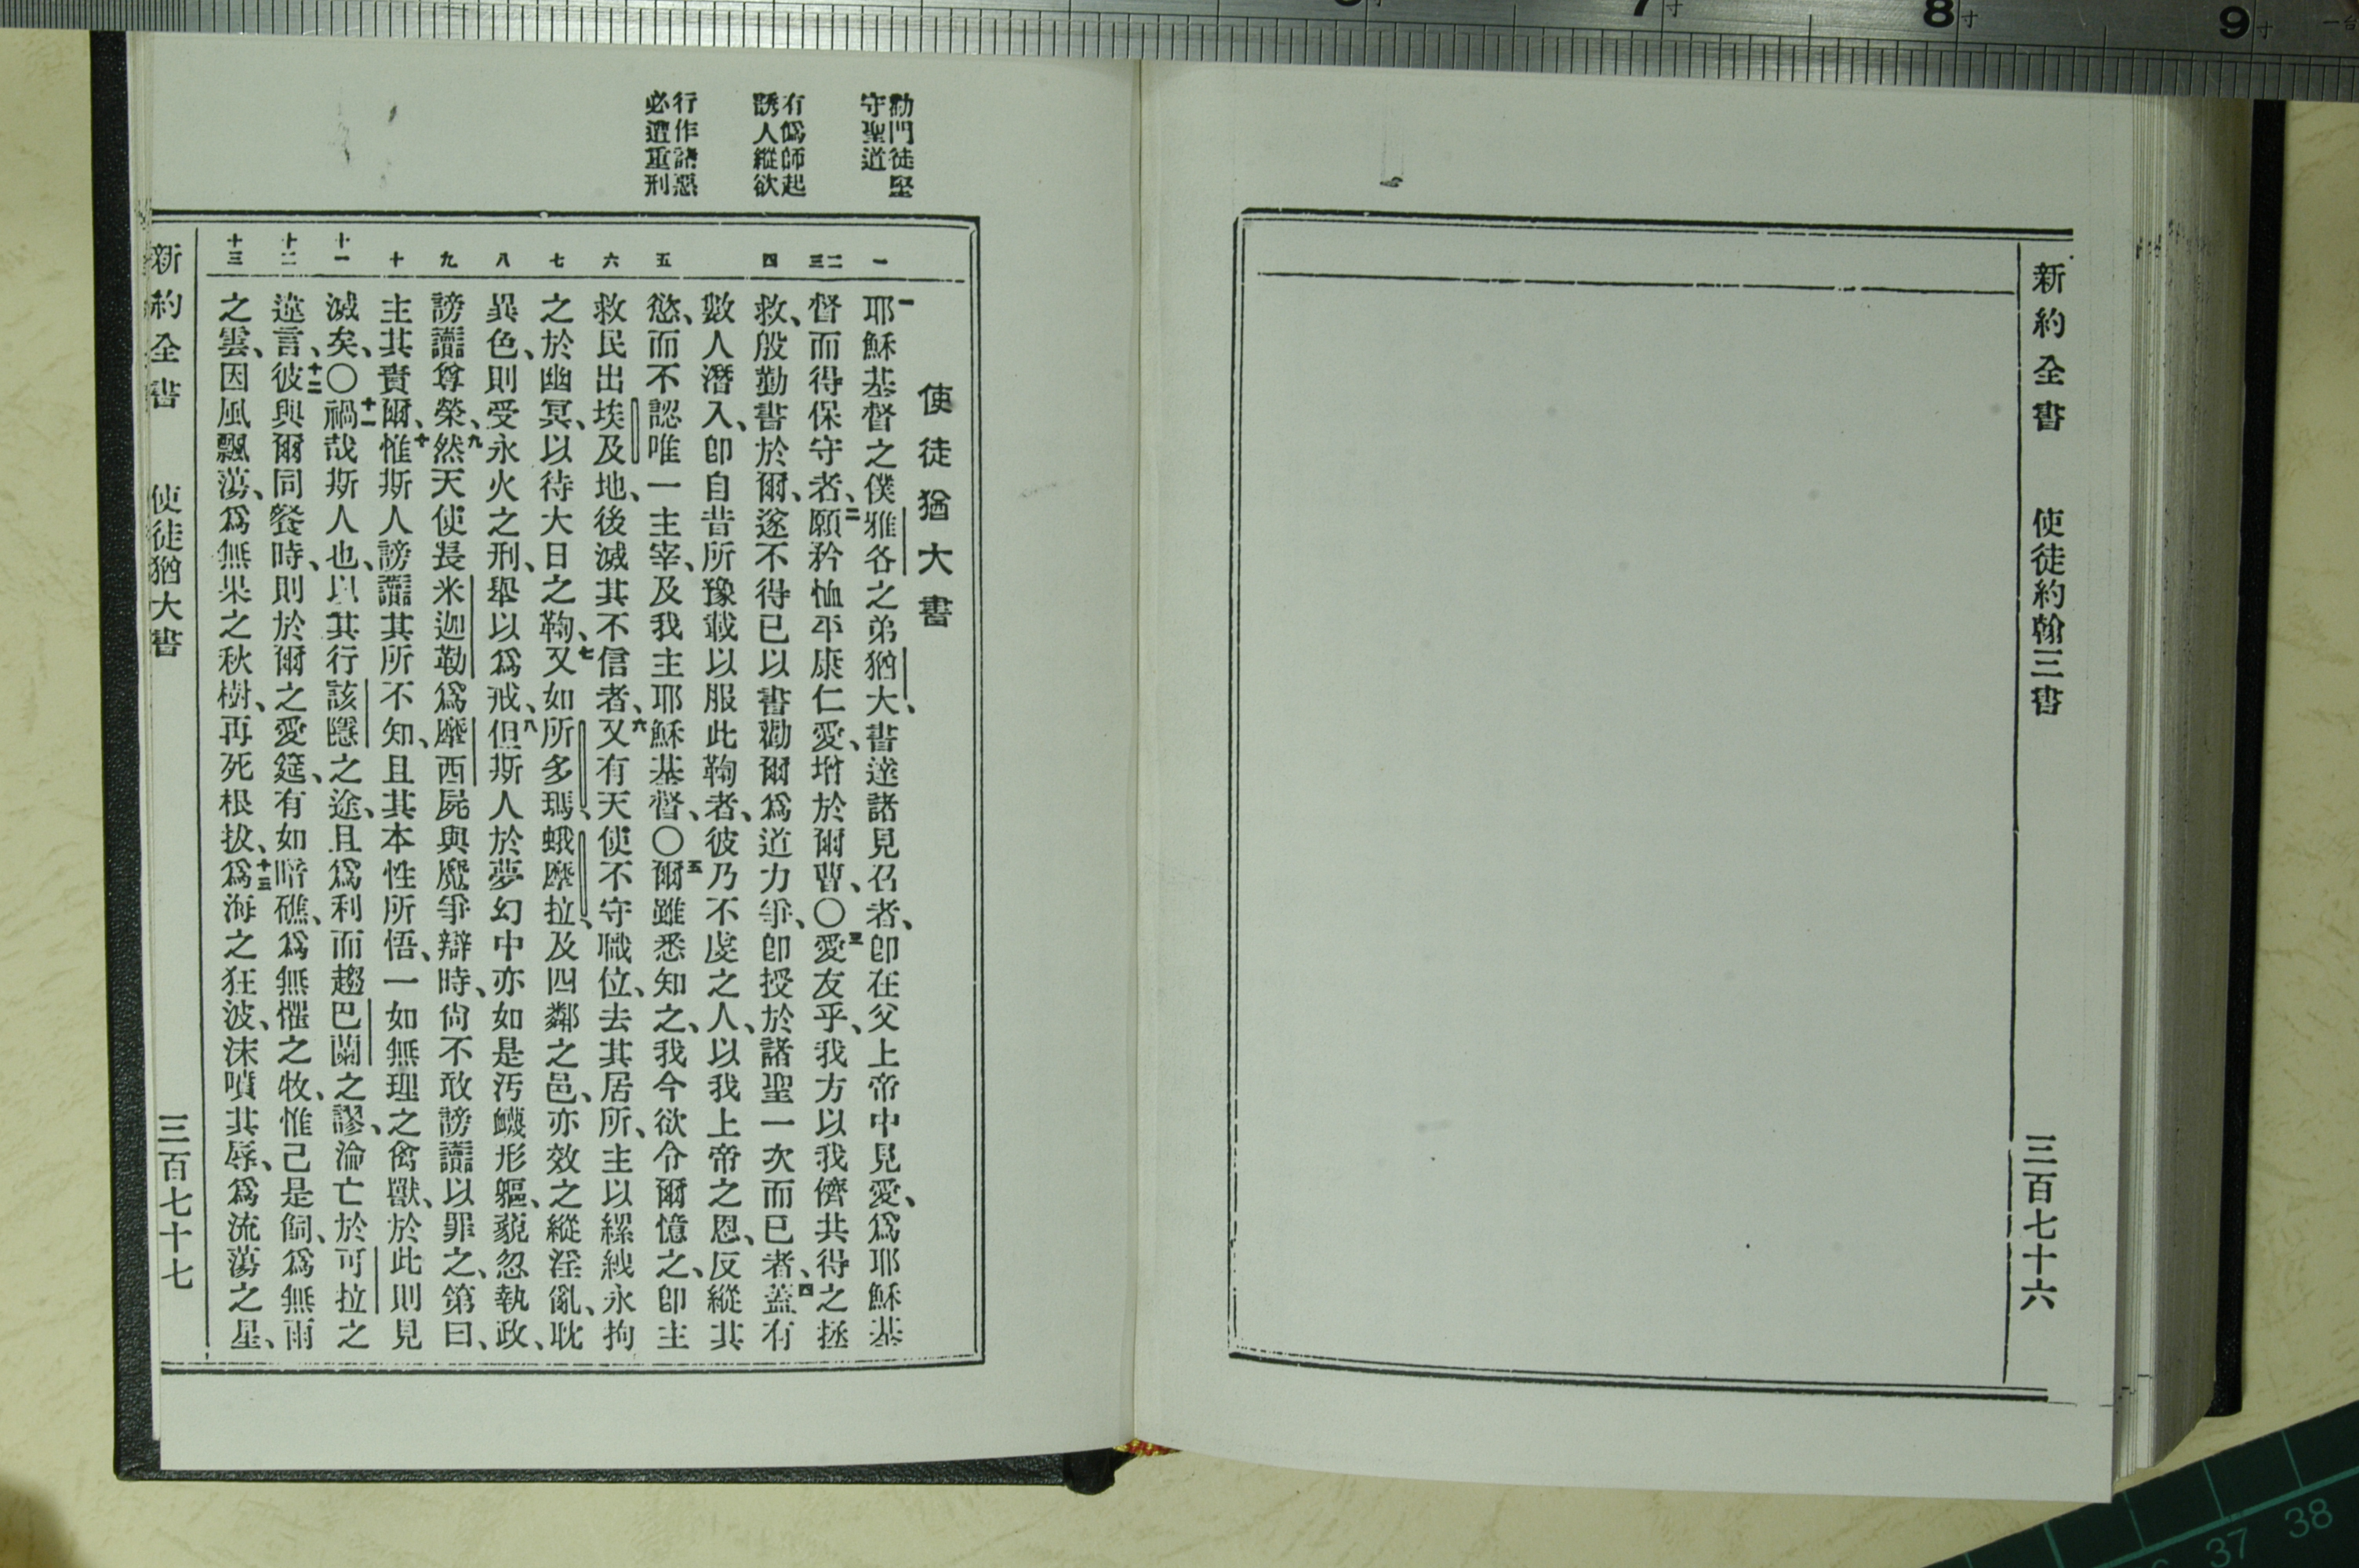 新約全書 使徒約翰三書 三百七十六
勸門徒堅
守聖道
有僞師起
誘人縱欲
行作諸惡
必遭重刑
使徒猶大書
一 二 三 四 五 六 七 八 九 十 十一 十二 十三
一耶穌基督之僕雅各之弟猶大、書達諸見召者、卽在父上帝中見愛、爲耶穌基
督而得保守者、二願矜恤平康仁愛、增於爾曹、〇三愛友乎、我方以我儕共得之拯
救、殷勤書於爾、遂不得已以書勸爾爲道力爭、卽授於諸聖一次而已者、四蓋有
數人潛入、卽自昔所豫載以服此鞫者、彼乃不虔之人、以我上帝之恩、反縱其
慾、而不認唯一主宰、及我主耶穌基督、〇五爾雖悉知之、我今欲令爾憶之、卽主
救民出埃及地、後滅其不信者、六又有天使不守職位、去其居所、主以縲絏永拘
之於幽冥、以待大日之鞫、七又如所多瑪、蛾摩拉、及四鄰之邑、亦效之縱淫亂、耽
異色、則受永火之刑、舉以爲戒、八但斯人於夢幻中亦如是汚衊形軀、藐忽執政、
謗讟尊榮、九然天使長米迦勒爲摩西屍與魔爭辯時、尙不敢謗讟以罪之、第曰、
主其責爾、十惟斯人謗讟其所不知、且其本性所悟、一如無理之禽獸、於此則見
滅矣、〇十一禍哉斯人也、以其行該隱之途、且爲利而趨巴蘭之謬、淪亡於可拉之
違言、十二彼與爾同餐時、則於爾之愛筵、有如暗礁、爲無懼之牧、惟己是飼、爲無雨
之雲、因風飄蕩、爲無果之秋樹、再死根拔、十三爲海之狂波、沫噴其辱、爲流蕩之星、
新約全書 使徒猶大書 三百七十七
6寸 7寸 8寸 9寸
37 38